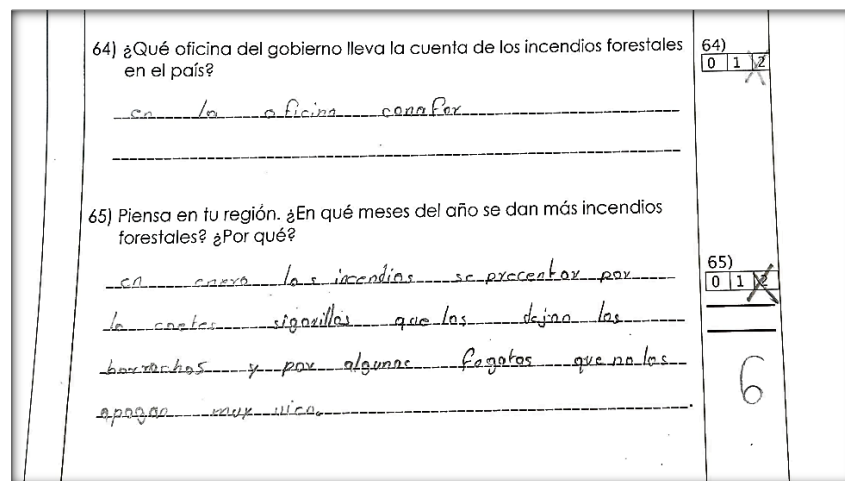 64) ¿Qué oficina del gobierno lleva la cuenta de los incendios forestales
en el país?
64)
0 1 2
en la oficina conafor
65) Piensa en tu región. ¿En qué meses del año se dan más incendios
forestales? ¿Por qué?
65)
0 1 2
en enero los incendios se precentar por
la coetes sigarillos que los dejan los
borrachos y por algunas fogatas que no las
apagan muy vien.
6